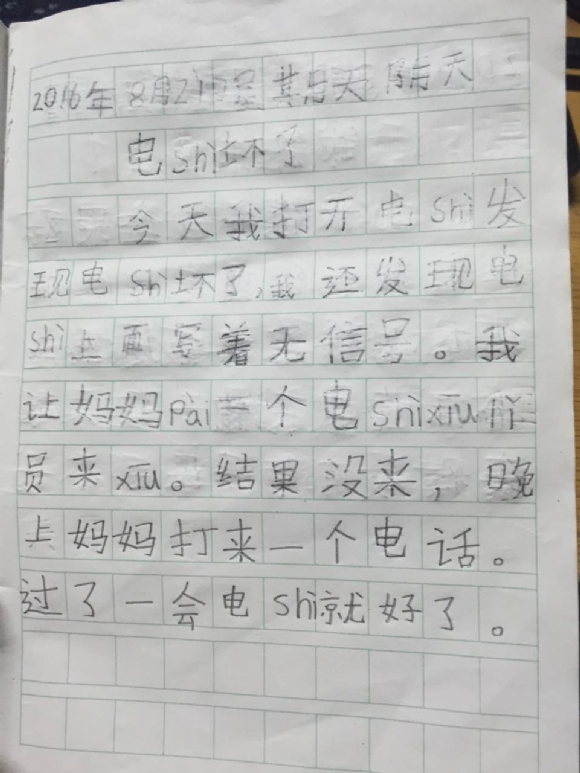 2016年 8月21日号 其月天 晴天
电shi坏了
今天我打开电shi发
现电shi坏了,我还发现电
shi上面写着无信号。我
让妈妈pai一个电shixiu
员来xiu。结果没来,晚
上妈妈打来一个电话。
过了一会电shi就好了。